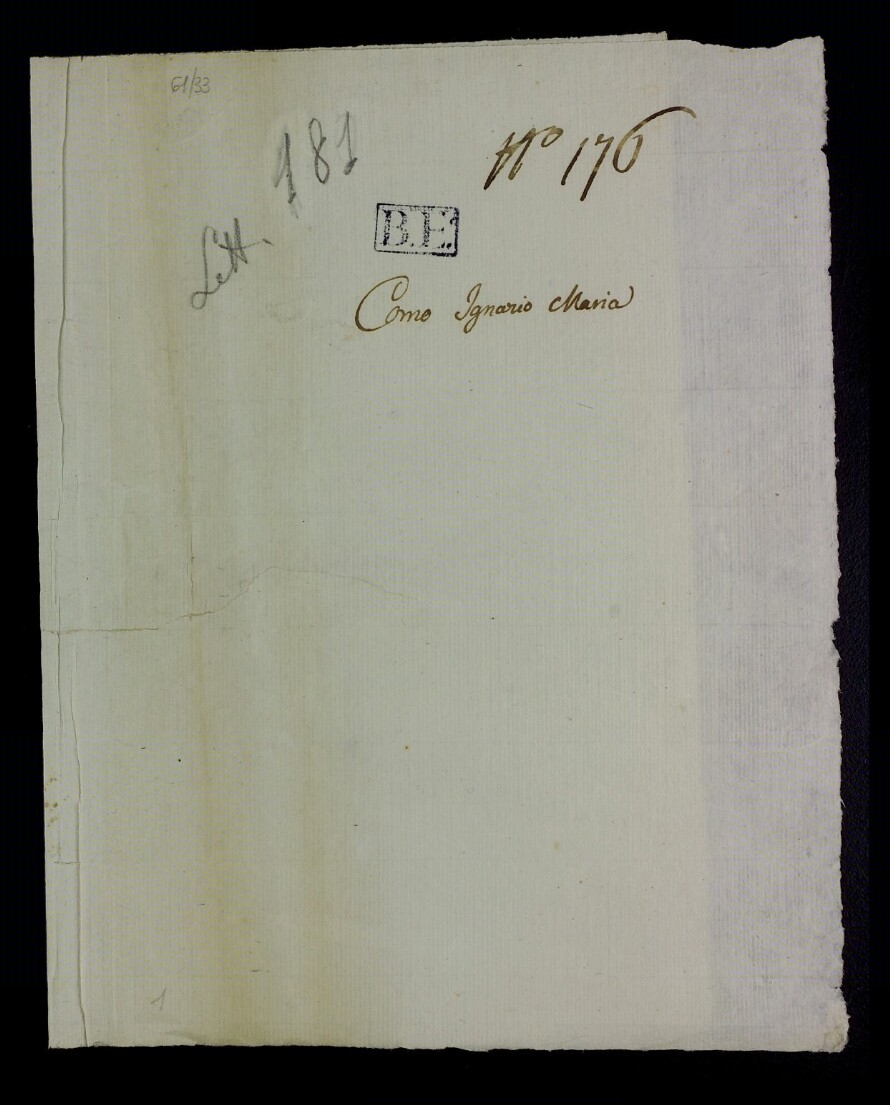 61/33
Nº 176
181
Lett.
B.E.
Como Ignazio Maria
1